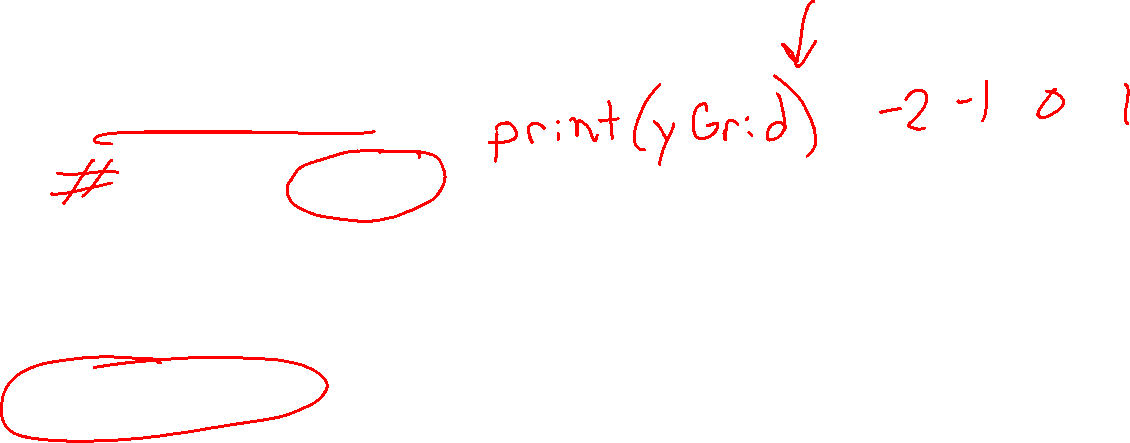 print(yGrid) -2 -1 0 1
#